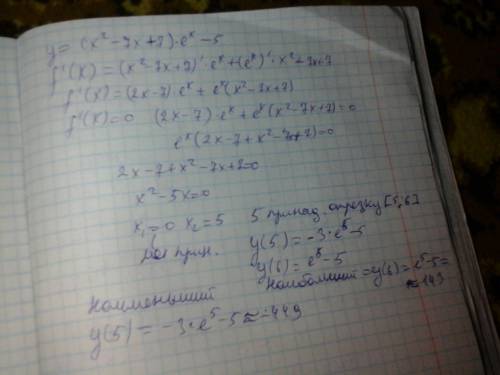 y = (x² - 7x + 7)·eˣ - 5
f'(x) = (x² - 7x + 7)'·eˣ + (eˣ)'·x² - 7x + 7
f'(x) = (2x - 7)·eˣ + eˣ(x² - 7x + 7)
f'(x) = 0 (2x - 7)·eˣ + eˣ(x² - 7x + 7) = 0
eˣ(2x - 7 + x² - 7x + 7) = 0
2x - 7 + x² - 7x + 7 = 0
x² - 5x = 0
x₁ = 0 x₂ = 5 5 принад. отрезку [5,6]
прин.
y(5) = -3·e⁵ - 5
y(6) = e⁶ - 5
наибольший = y(6) = e⁵ - 5 =
≈ 143
наименьший
y(5) = -3·e⁵ - 5 ≈ -449